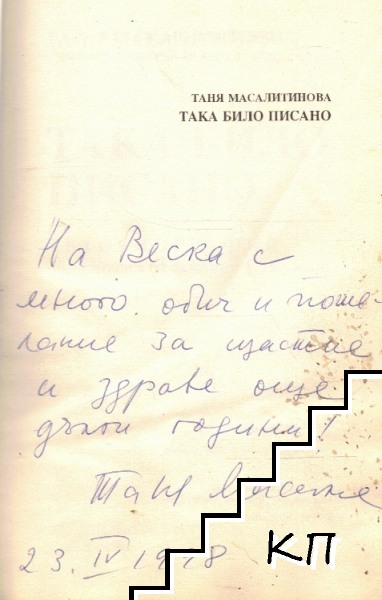 ТАНЯ МАСАЛИТИНОВА
ТАКА БИЛО ПИСАНО
На Веска с
много обич и поже-
лание за щастие
и здраве още
дълги години!
Таня
23. IV 19 8
КП